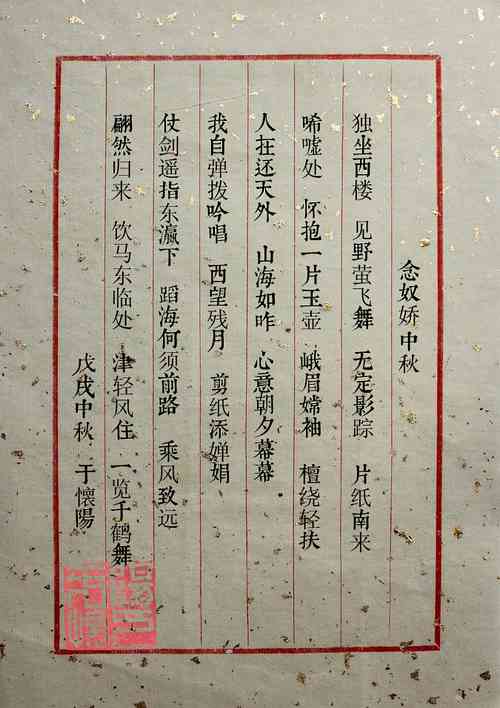 念奴娇中秋
独坐西楼 见野萤飞舞 无定影踪 片纸南来
唏嘘处 怀抱一片玉壶 峨眉嫦袖 檀绕轻扶
人在还天外 山海如咋 心意朝夕幕幕
我自弹拨吟唱 西望残月 剪纸添婵娟
仗剑遥指东瀛下 蹈海何须前路 乘风致远
翩然归来 饮马东临处 津轻风住 一览千鹤舞
戊戌中秋 于懷陽